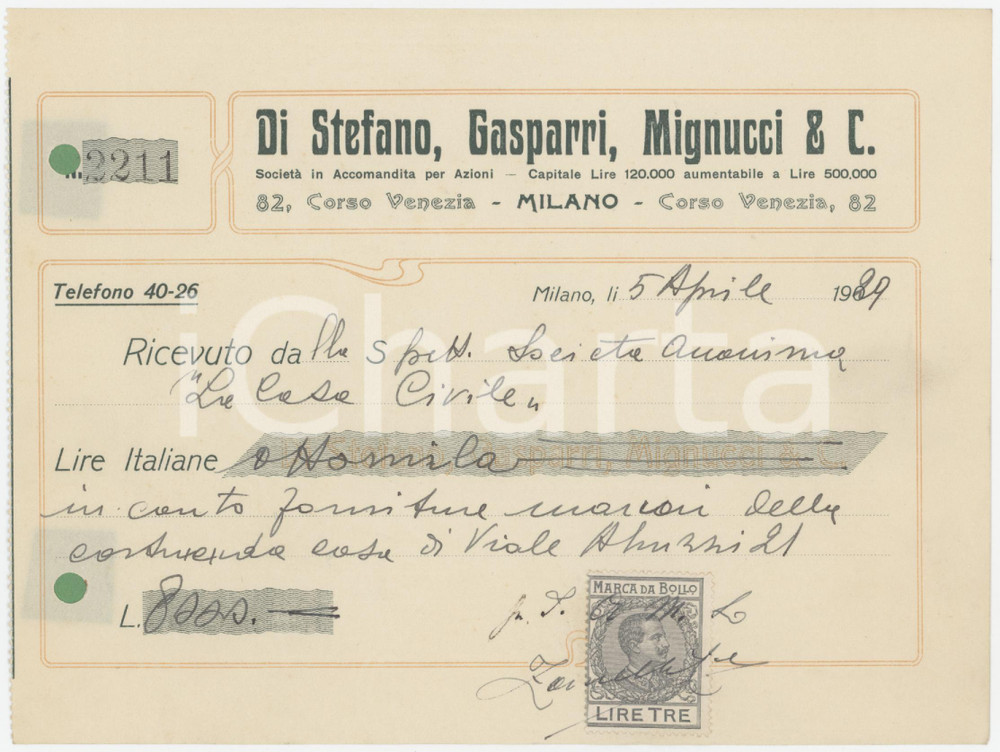 Di Stefano, Gasparri, Mignucci & C.
Società in Accomandita per Azioni — Capitale Lire 120.000 aumentabile a Lire 500,000
82, Corso Venezia - MILANO - Corso Venezia, 82
N. 2211
Telefono 40-26
Milano, li 5 Aprile 1929
Ricevuto dalla Spett. Società Anonima
"La Casa Civile"
Lire Italiane ottomila
Gasparri, Mignucci & C.
in conto forniture marmi della
costruenda casa di Viale Abruzzi 21
L. 8000.—
MARCA DA BOLLO
LIRE TRE
iCharta